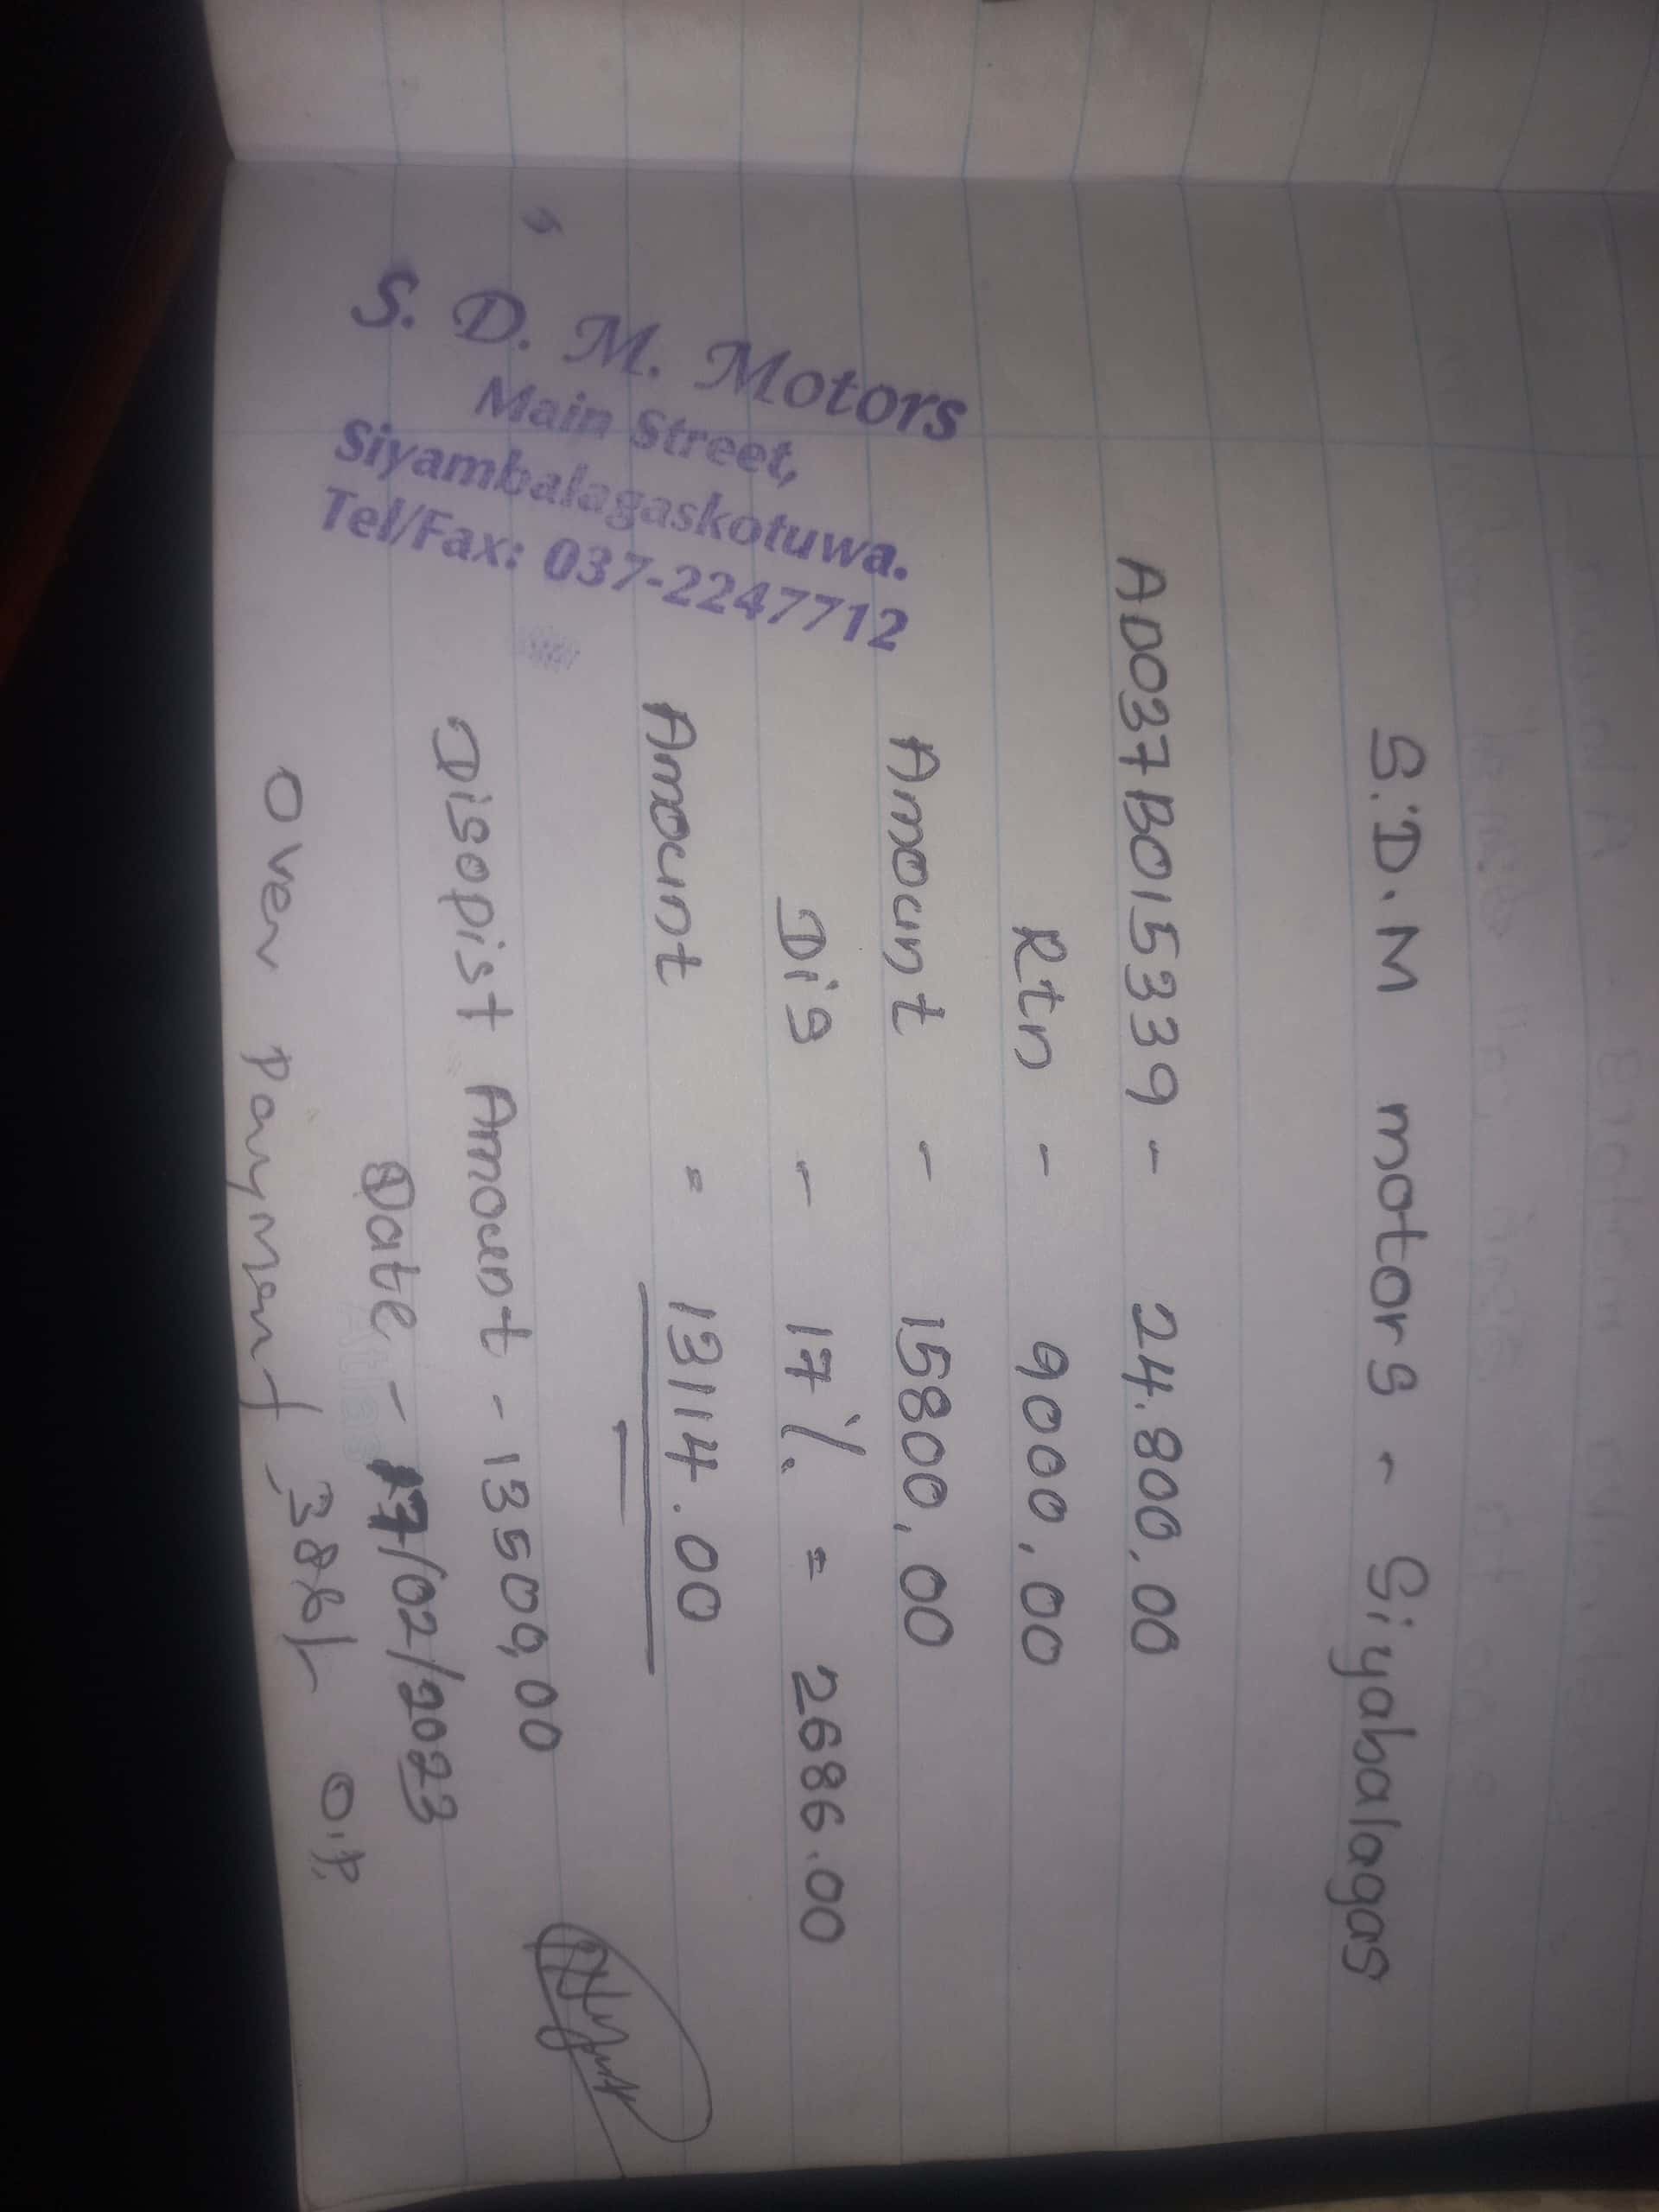 S.D.M motors - Siyabalagas
AD037B015339 - 24.800.00
Rtn - 9000.00
Amount - 15800.00
Dis - 17% = 2686.00
Amount = 13114.00
Disopist Amount - 13500.00
Date - 17/02/2023
Over payment 386/- O.P.
S. D. M. Motors
Main Street,
Siyambalagaskotuwa.
Tel/Fax: 037-2247712